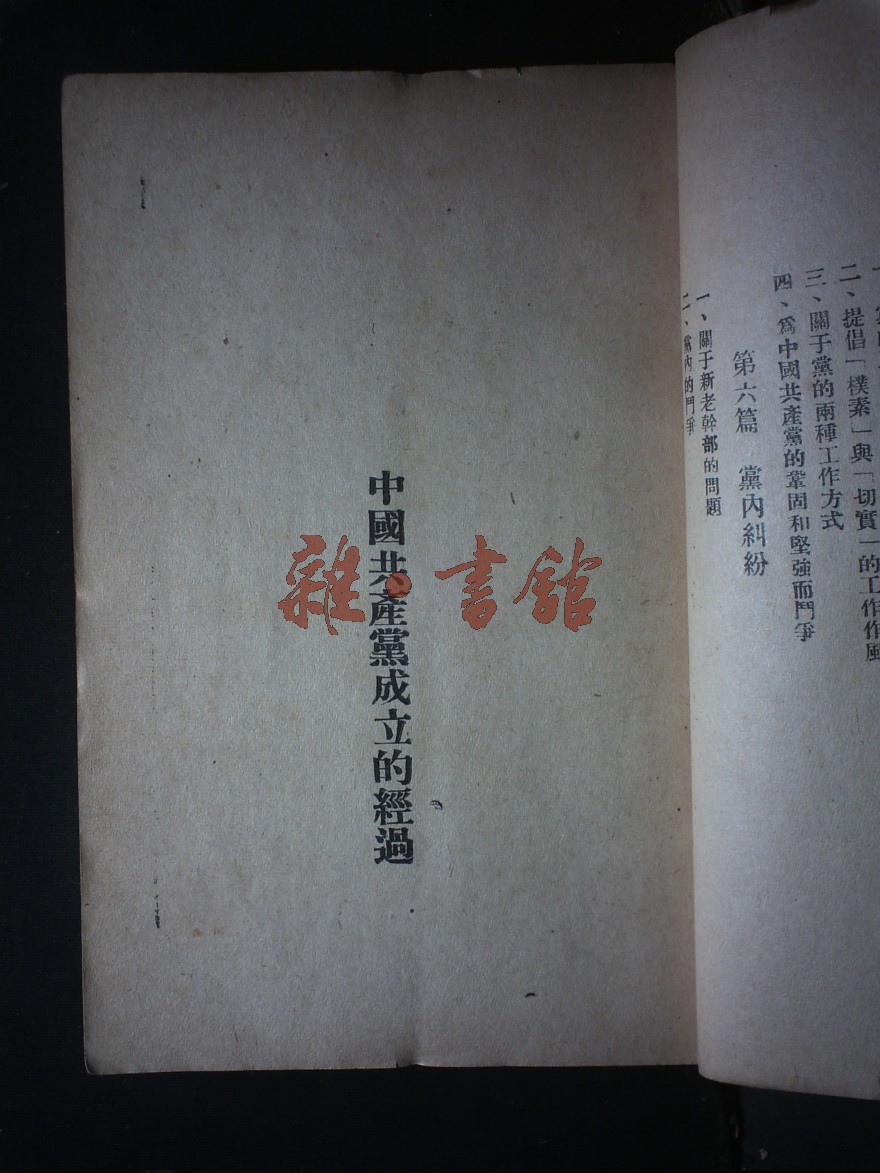 二、提倡「樸素」與「切實」的工作作風
三、關于黨的兩種工作方式
四、爲中國共產黨的鞏固和堅強而鬥爭
第六篇 黨內糾紛
一、關于新老幹部的問題
二、黨內的鬥爭
中國共產黨成立的經過
雜·書館